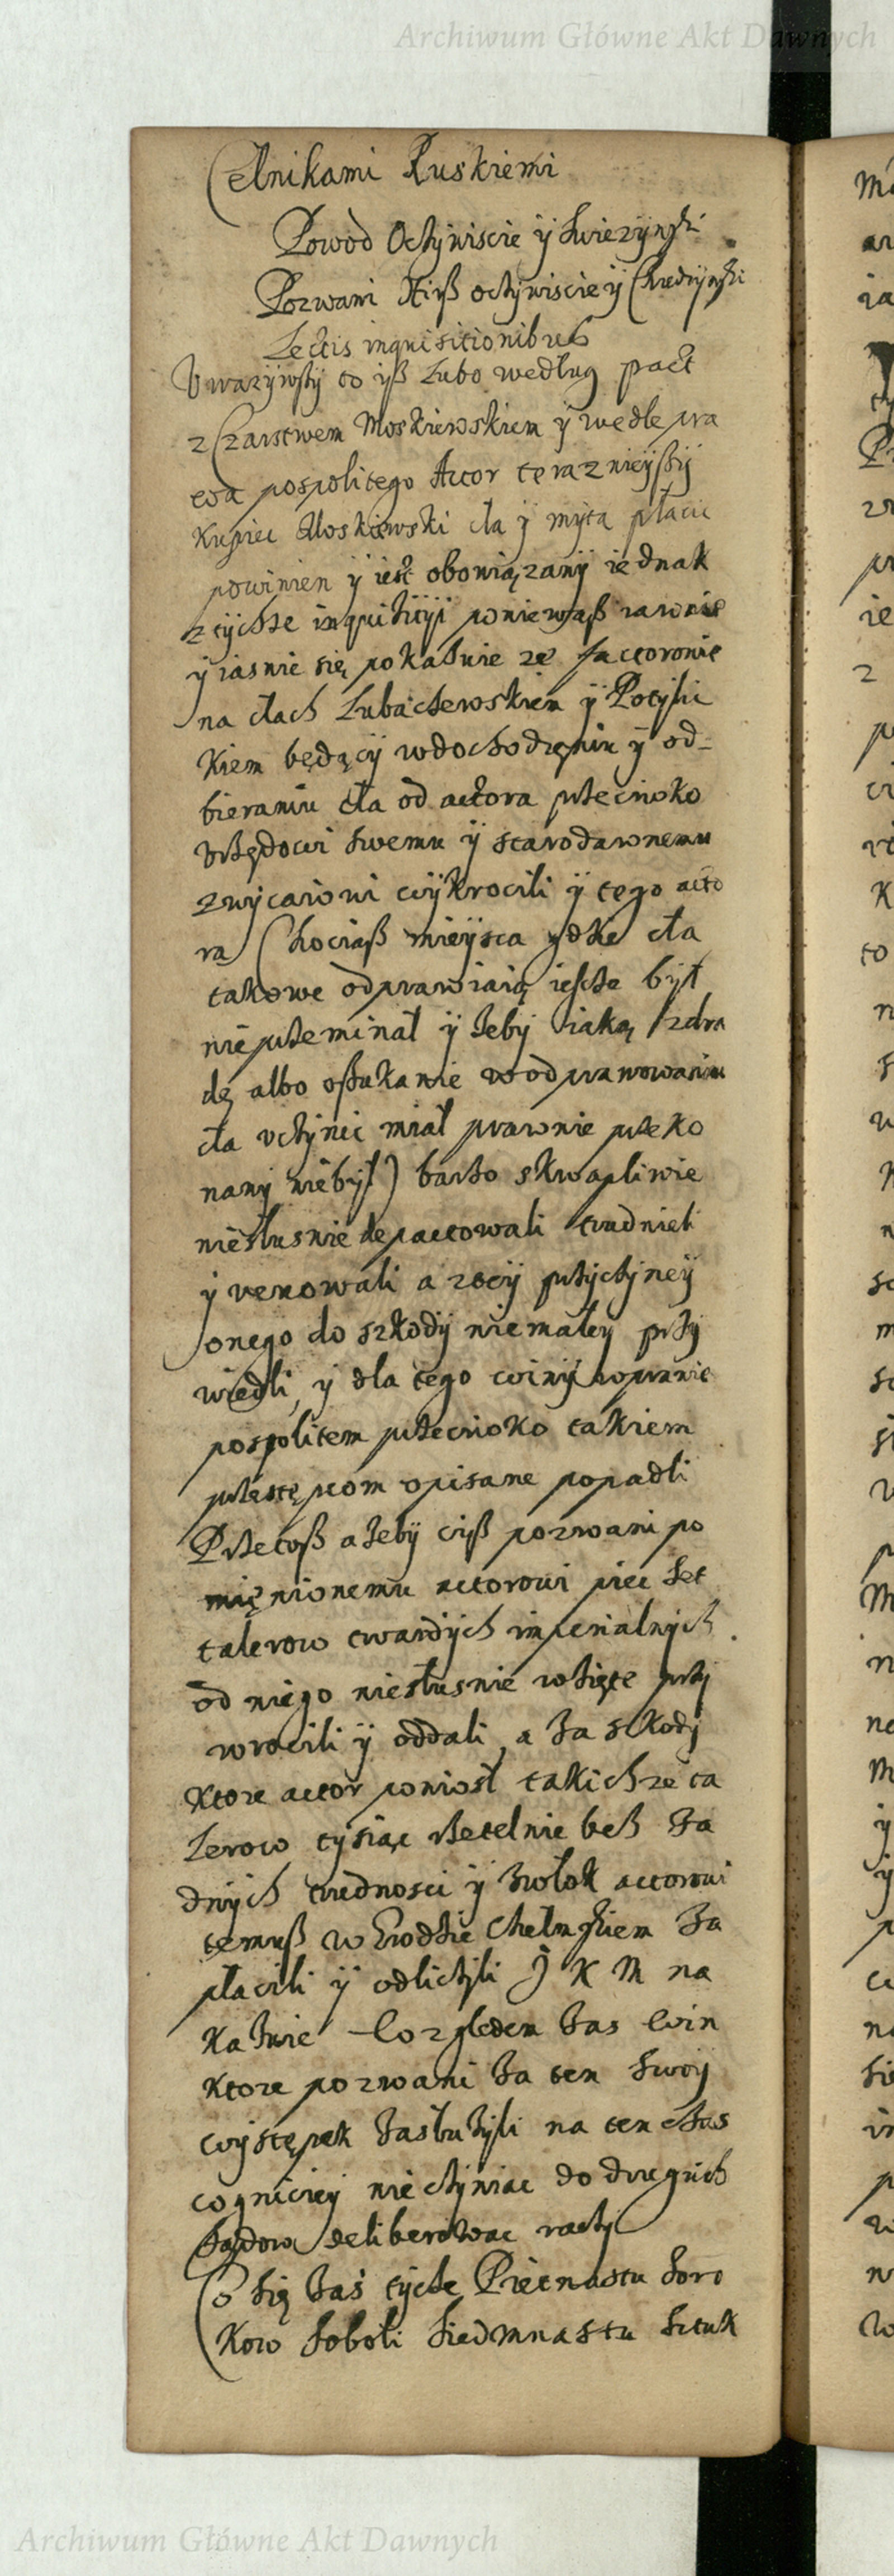 Archiwum Główne Akt Dawnych
Celnikami Ruskiemi
Powod Oczÿwiscie ÿ Swiezÿnski
Pozwani Kiß oczÿwiscie ÿ
Lectis inquisitionibus
Uwazÿwszÿ to ÿß Lubo według pact
z Czarstwem Moskiewskiem ÿ wedle pra
wa pospolitego Actor terazniejszÿ
Kupiec Moskiewski cła ÿ mÿta płacic
powinien ÿ iest obowiązanÿ iednak
z tÿchze inquiziciÿ poniewasz iawnie
ÿ iasnie się pokazuie ze factorowie
na cłach Lubaczewskiem ÿ Potÿlic
kiem będącÿ w dochodzeniu ÿ od-
bieraniu cła od actora przeciwko
Vrzędowi swemu ÿ starodawnemu
zwÿcaiowi wÿkrocili ÿ tego acto
ra (Chociaß mieÿsca gdzie cła
takowe odprawiaią iescze bÿł
nie przeminał ÿ zebÿ iaką zdra
dę albo oßukanie w odprawowaniu
cła vczÿnic miał prawnie przeko
nanÿ nie bÿł) barzo skwapliwie
niesłusnie depactowali trudnieli
ÿ vexowali a z teÿ przÿczÿneÿ
onego do szkodÿ niemałeÿ przÿ
wiedli, ÿ dla tego winÿ w prawie
pospolitem przeciwko takiem
przestępcom opisane popadli
Przetoß azebÿ ciß pozwani po
mięnionemu actorowi piec set
talerow twardÿch imperialnÿch
od niego niesłusnie wzięte przÿ
wrocili ÿ oddali, a za szkodÿ
ktore actor poniosł takichze ta
lerow tÿsiąc rzetelnie beß za
dnÿch trudnosci ÿ zwłok actorowi
temuß w Grodzie Chełmskiem za
płacili ÿ odliczÿli J K M na
kazuie Wzgledem zas win
ktore pozwani za ten swoÿ
wÿstępek zasłuzÿli na ten czas
cogniciej nie czÿniac do drugich
sądow deliberowac raczÿ
Co się zaś tÿcze Pietnastu Soro
kow Soboli Siedmnastu Sztuk
Archiwum Główne Akt Dawnych